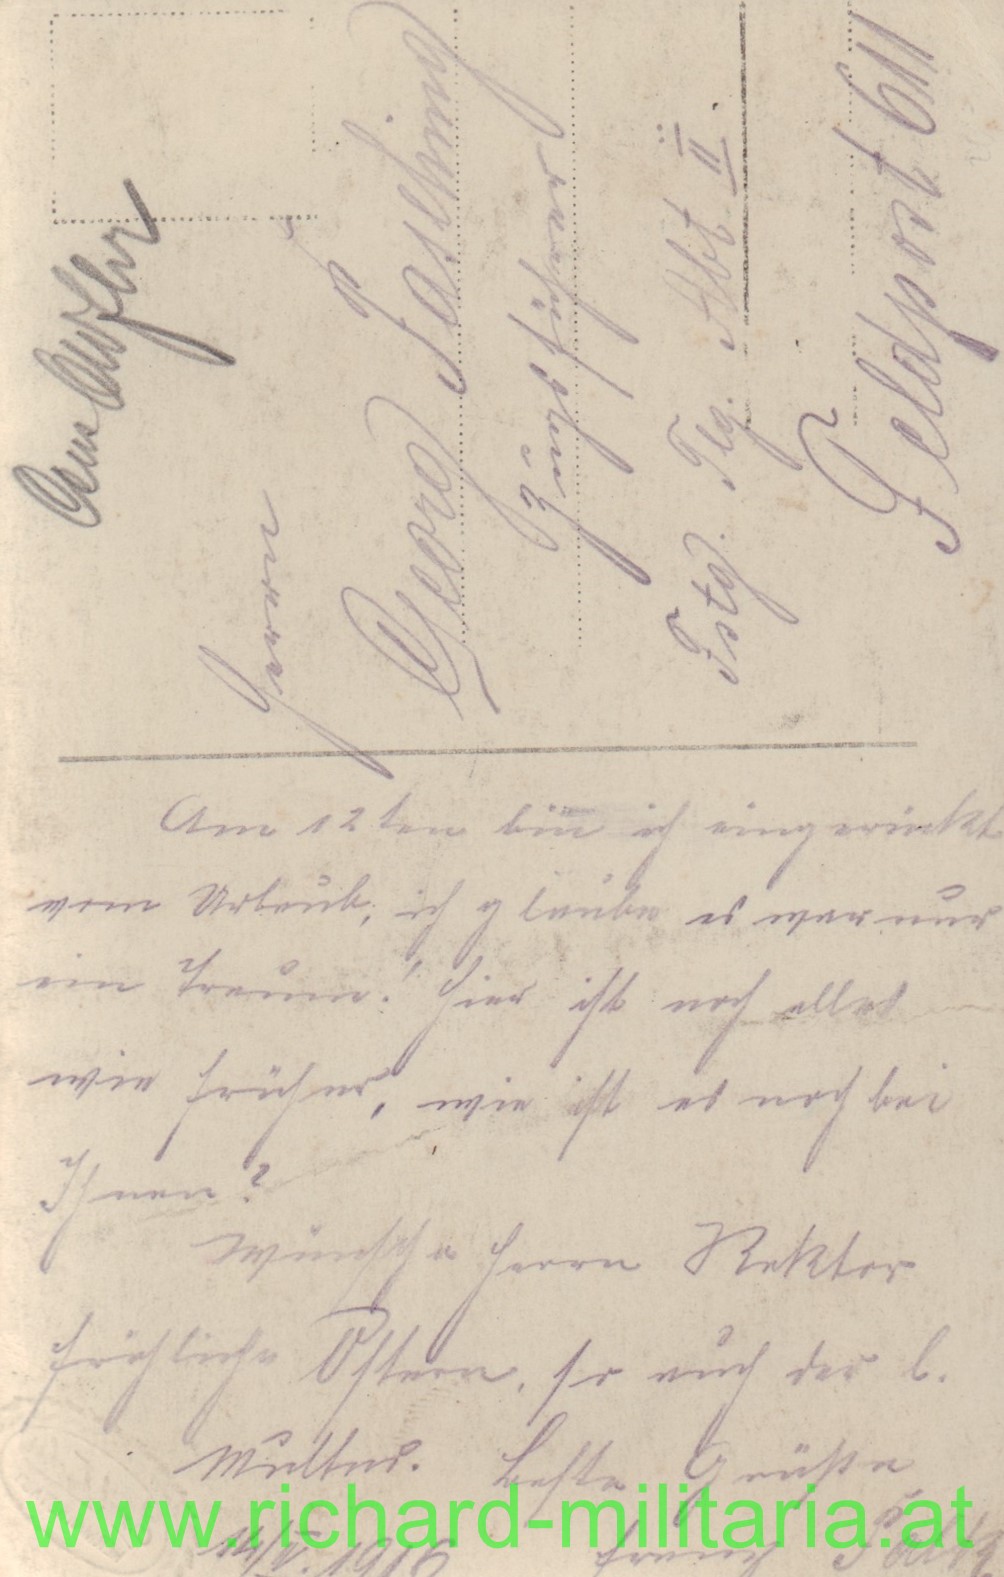 Herrn
Georg Fasching
Zugsführer
Fstg. Tlg. Abt II
Feldpost 611
Am 12ten bin ich eingerückt
vom Urlaub, ich glaube es war nur
ein Traum! hier ist noch alles
wie früher, wie ist es noch bei
Ihnen?
Wünsche Herrn Rektor
fröhliche Ostern, so auch der l.
Mutter. Beste Grüße
Franz
www.richard-militaria.at